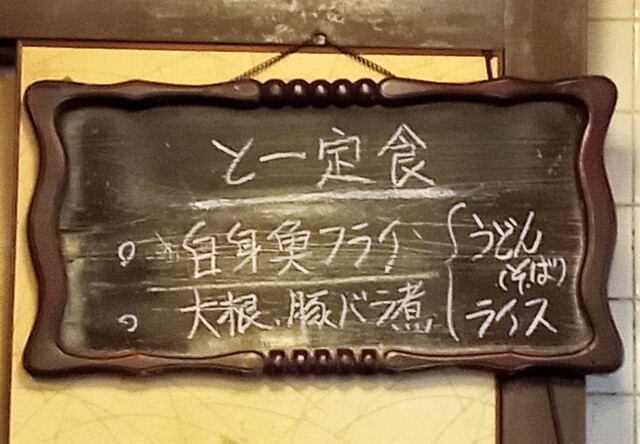 と一定食
白身魚フライ うどん
(そば)
大根、豚バラ煮 ライス